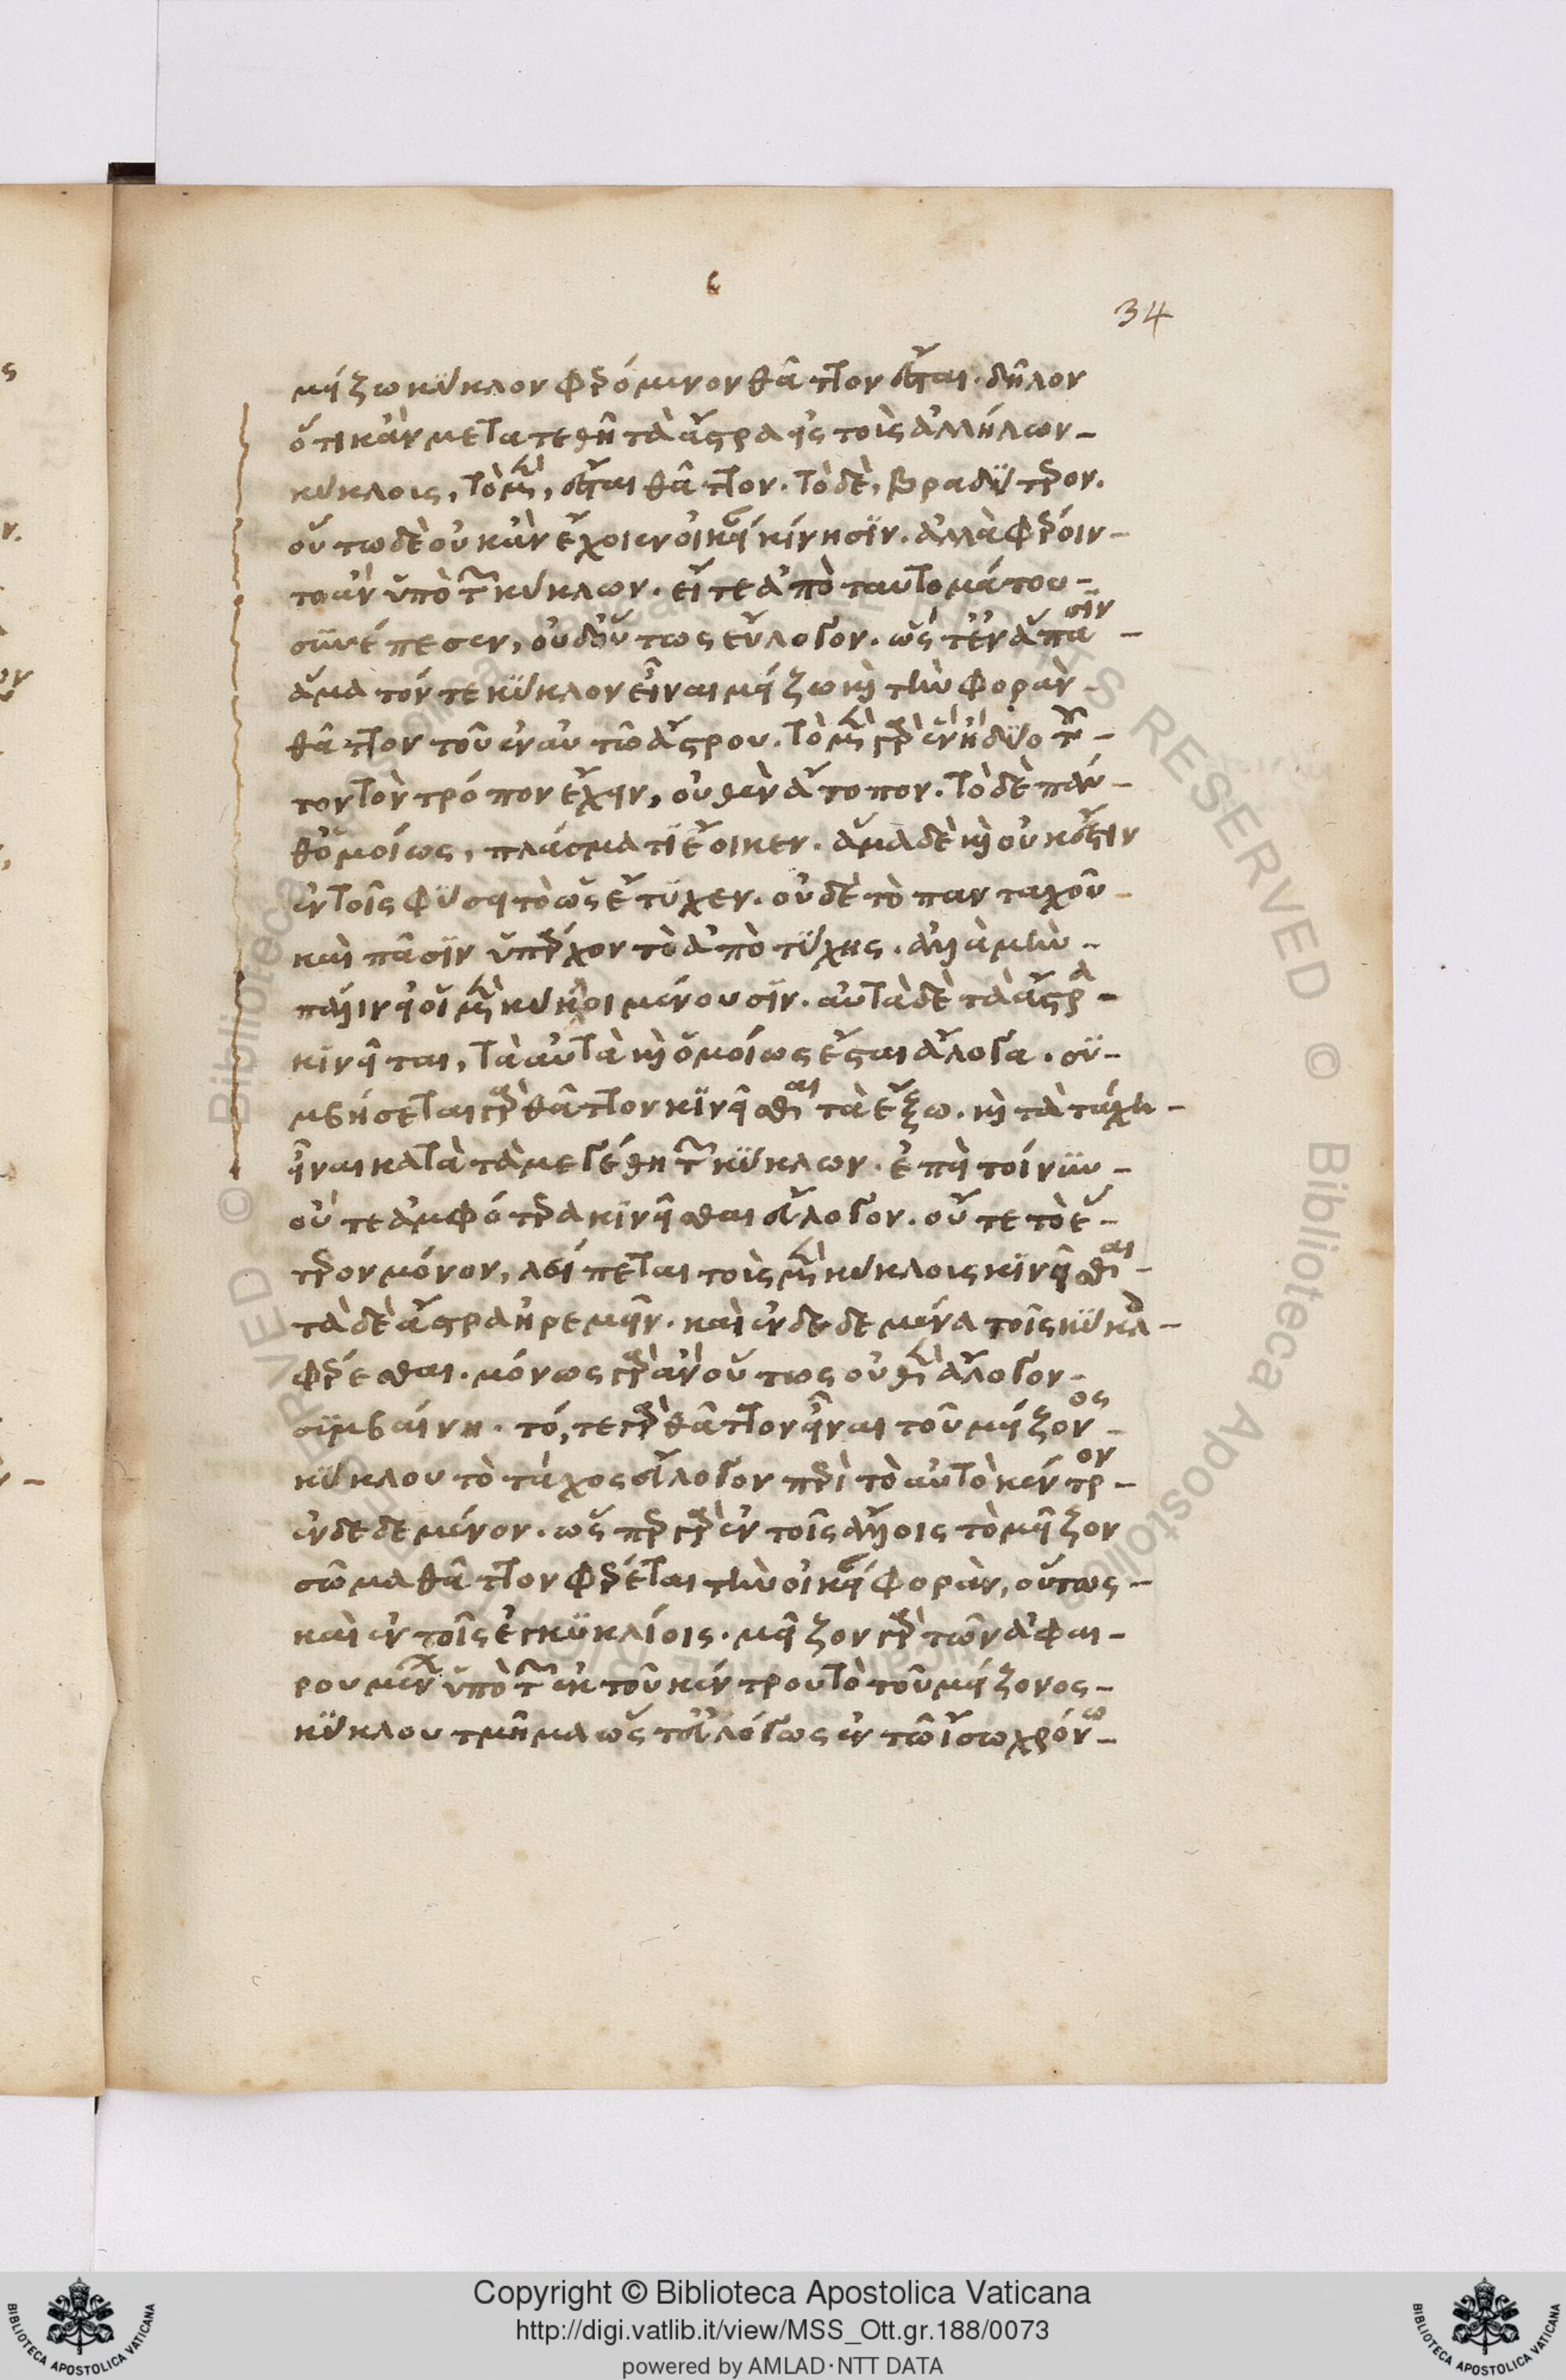 ϛ
34
μείζω κύκλον φερόμενον θᾶττον ἔσται. δῆλον
ὅτι κἂν μετατεθῆ τὰ ἄστρα εἰς τοὺς ἀλλήλων
κύκλοις, τὸ μὲν, ἔσται θᾶττον. τὸ δὲ, βραδύτερον.
οὕτω δὲ οὐκ ἂν ἔχοιεν οἰκείαν κίνησιν. ἀλλὰ φέροιν
το ἂν ὑπὸ τῶν κύκλων. εἴτε ἀπὸ ταυτομάτου
συνέπεσεν, οὐδ' οὕτως εὔλογον. ὥστ' ἐν ἅπασιν
ἅμα τόν τε κύκλον εἶναι μείζω καὶ τὴν φορὰν
θᾶττον τοῦ ἐν αὐτῶ ἄστρου. τὸ μὲν γὰρ ἓν ἢ δύο τοῦ
τον τὸν τρόπον ἔχειν, οὐθὲν ἄτοπον. τὸ δὲ πάν
θ' ὁμοίως, πλάσματι ἔοικεν. ἅμα δὲ καὶ οὐκ ἔστιν
ἐν τοῖς φύσει τὸ ὡς ἔτυχεν. οὐδὲ τὸ πανταχοῦ
καὶ πᾶσιν ὑπάρχον τὸ ἀπὸ τύχης. ἀλλὰ μὴν
πάλιν εἰ οἱ μὲν κύκλοι μένουσιν. αὐτὰ δὲ τὰ ἄστρα
κινεῖται, τὰ αὐτὰ καὶ ὁμοίως ἔσται ἄλογα. συ
μβήσεται γὰρ θᾶττον κινεῖσθαι τὰ ἔξω. καὶ τὰ τάχη
εἶναι κατὰ τὰ μεγέθη τῶν κύκλων. ἐπεὶ τοίνυν
οὔτε ἀμφότερα κινεῖσθαι εὔλογον. οὔτε τὸ ἕ
τερον μόνον, λείπεται τοὺς μὲν κύκλοις κινεῖσθαι
τὰ δὲ ἄστρα ἠρεμεῖν. καὶ ἐνδεδεμένα τοῖς κύκλοις
φέρεσθαι. μόνως γὰρ ἂν οὕτως οὐθὲν ἄλογον
συμβαίνη. τό, τε γὰρ θᾶττον εἶναι τοῦ μείζονος
κύκλου τὸ τάχος εὔλογον περὶ τὸ αὐτὸ κέντρον
ἐνδεδεμένον. ὥσπερ γὰρ ἐν τοῖς ἄλλοις τὸ μεῖζον
σῶμα θᾶττον φέρεται τὴν οἰκείαν φορὰν, οὕτως
καὶ ἐν τοῖς ἐγκυκλίοις. μεῖζον γὰρ τῶν ἀφαι
ρουμένων ὑπὸ τῶν ἐκ τοῦ κέντρου τὸ τοῦ μείζονος
κύκλου τμῆμα ὥστ' εὐλόγως ἐν τῶ ἴσω χρόνω
Copyright © Biblioteca Apostolica Vaticana
http://digi.vatlib.it/view/MSS_Ott.gr.188/0073
powered by AMLAD·NTT DATA